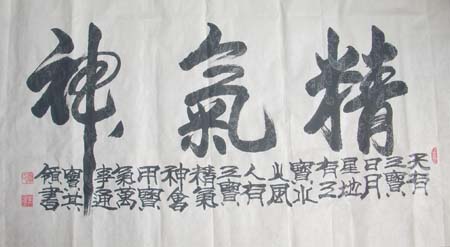 精氣神
天有
三寶
日月
星地
有三
寶水
火風
人有
三寶
精氣
神會
用寶
氣萬
事通
其
書